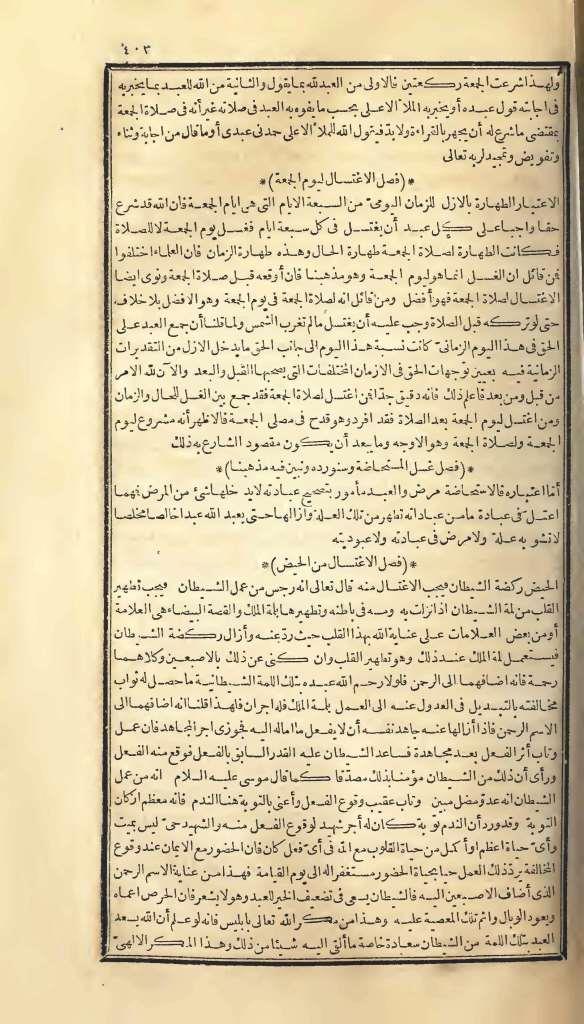 ٤٠٣
ولهذا شرعت الجمعة ركعتين فالاولى من العبد لله بما يقول والثانية من الله للعبد بما يخبر به
فى اجابته قول عبده أو يخبر به الملأ الاعلى بحسب ما يفوه به العبد فى صلاته غير أنه فى صلاة الجمعة
بمقتضى ما شرع له أن يجهر بالقراءة ولا بد فيقول الله للملأ الاعلى حمدنى عبدى أو ما قال من اجابة وثناء
وتفويض وتمجيد لربه تعالى
*(فصل الاغتسال ليوم الجمعة)*
الاعتبار الطهارة بالازل للزمان اليومى من السبعة الايام التى هى ايام الجمعة فان الله قد شرع
حقا واجبا على كل عبد أن يغتسل فى كل سبعة ايام فغسل يوم الجمعة لا للصلاة
فكانت الطهارة لصلاة الجمعة طهارة الحال وهذه طهارة الزمان فان العلماء اختلفوا
فمن قائل ان الغسل انما هو ليوم الجمعة وهو مذهبنا فان أوقعه قبل صلاة الجمعة ونوى ايضا
الاغتسال لصلاة الجمعة فهو أفضل ومن قائل انه لصلاة الجمعة فى يوم الجمعة وهو الافضل بلا خلاف
حتى لو تركه قبل الصلاة وجب عليه أن يغتسل ما لم تغرب الشمس ولما قلنا أن جمع العبد على
الحق فى هذا اليوم الزمانى كانت نسبة هذا اليوم الى جانب الحق ما يدخل الازل من التقديرات
الزمانية فيه بعيين توجهات الحق فى الازمان المختلفات التى يصحبها القبل والبعد والآن لله الامر
من قبل ومن بعد فاعلم ذلك فانه دقيق جدا فمن اغتسل لصلاة الجمعة فقد جمع بين الغسل للحال والزمان
ومن اغتسل ليوم الجمعة بعد الصلاة فقد افرد وهو قدح فى مصلى الجمعة فالاظهر أنه مشروع ليوم
الجمعة ولصلاة الجمعة وهو الاوجه وما يبعد أن يكون مقصود الشارع به ذلك
*(فصل غسل المستحاضة وسنورده ونبين فيه مذهبنا)*
أما اعتباره فالاستحاضة مرض والعبد مأمور بتصحيح عباداته لا يدخلها شئ من المرض فمهما
اعتل فى عبادة ما من عباداته تطهر من تلك العلة وازالها حتى يعبد الله عبدا خالصا مخلصا
لا تشوبه علة ولا مرض فى عبادته ولا عبوديته
*(فصل الاغتسال من الحيض)*
الحيض ركضة الشيطان فيجب الاغتسال منه قال تعالى انه رجس من عمل الشيطان فيجب تطهير
القلب من لمة الشيطان اذا نزلت به ومسه فى باطنه وتطهيرها بلمة الملك والقصة البيضاء هى العلامة
أو من بعض العلامات على عناية الله بهذا القلب حيث رد عنه وأزال ركضة الشيطان
فيستعمل لمة الملك عند ذلك وهو تطهير القلب وان كنى عن ذلك بالاصبعين وكلاهما
رحمة فانه اضافهما الى الرحمن فلولا رحم الله عبده بتلك اللمة الشيطانية ما حصل له ثواب
مخالفته بالتبديل فى العدول عنه الى العمل بلمة الملك فله اجران فلهذا قلنا انه اضافهما الى
الاسم الرحمن فاذا أزالها عنه جاهد نفسه أن لا يفعل ما اماله اليه فجوزى اجر المجاهد فان عمل
وتاب أثر الفعل بعد مجاهدة فساعد الشيطان عليه القدر السابق بالفعل فوقع منه الفعل
ورأى أن ذلك من الشيطان مؤمنا بذلك مصدقا كما قال موسى عليه السلام انه من عمل
الشيطان انه عدو مضل مبين وتاب عقيب وقوع الفعل وأعنى بالتوبة هنا الندم فانه معظم اركان
التوبة وقد ورد أن الندم توبة كان له أجر شهيد لوقوع الفعل منه والشهيد حى ليس بميت
وأى حياة اعظم او أكمل من حياة القلوب مع الله فى أى فعل كان فان الحضور مع الايمان عند وقوع
المخالفة يرد ذلك العمل حيا بحياة الحضور مستغفرا له الى يوم القيامة فهذا من عناية الاسم الرحمن
الذى أضاف الاصبعين اليه فالشيطان يسعى فى تضعيف الخير للعبد وهو لا يشعر فان الحرص اعماه
ويعود الوبال واثم تلك المعصية عليه وهذا من مكر الله تعالى بابليس فانه لو علم أن الله يسعد
العبد بتلك اللمة من الشيطان سعادة خاصة ما ألقى اليه شيئا من ذلك وهذا المكر الالهى